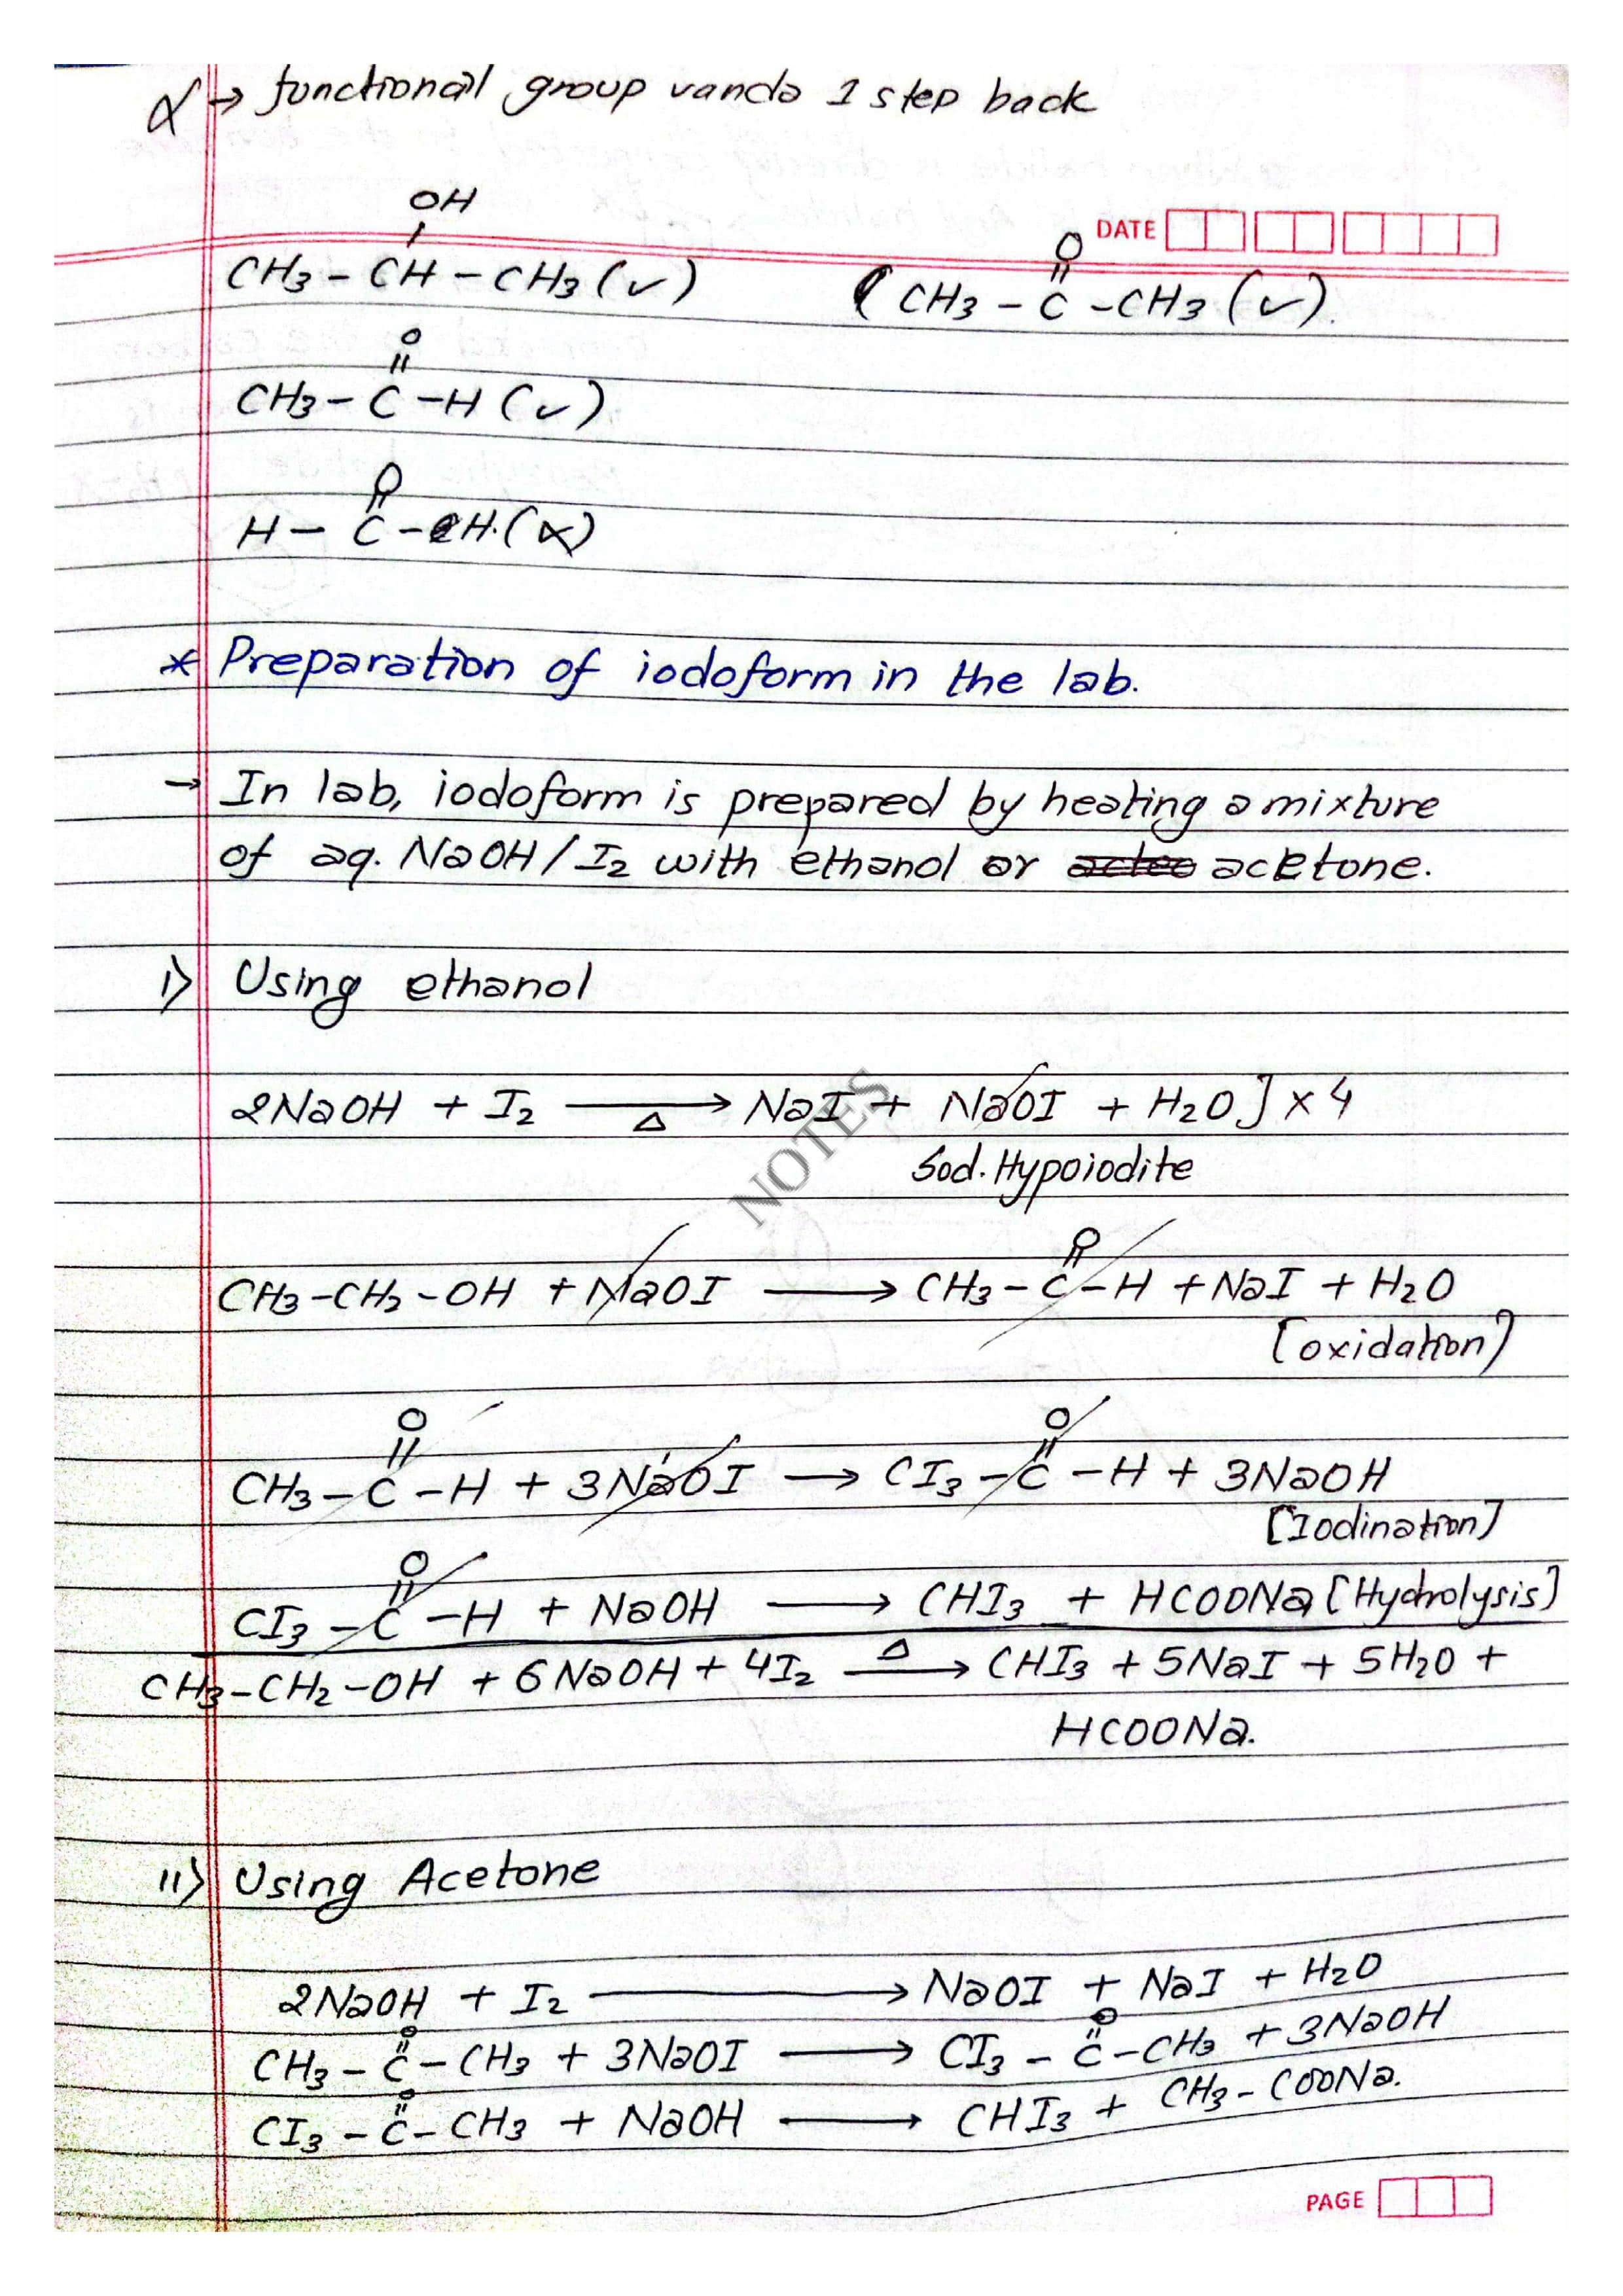 α → functional group vanda 1 step back
OH
DATE
CH3 - CH - CH3 (✓)
O
( CH3 - C - CH3 (✓).
O
CH3 - C - H (✓)
O
H - C - H. (×)
* Preparation of iodoform in the lab.
→ In lab, iodoform is prepared by heating a mixture
of aq. NaOH / I2 with ethanol or acetone.
i) Using ethanol
2NaOH + I2 ⟶ NaI + NaOI + H2O ] × 4
Δ
Sod. Hypoiodite
NOTES
O
CH3 - CH2 - OH + NaOI ⟶ CH3 - C - H + NaI + H2O
[oxidation]
O O
CH3 - C - H + 3NaOI ⟶ CI3 - C - H + 3NaOH
[Iodination]
O
CI3 - C - H + NaOH ⟶ CHI3 + HCOONa [Hydrolysis]
Δ
CH3 - CH2 - OH + 6NaOH + 4I2 ⟶ CHI3 + 5NaI + 5H2O +
HCOONa.
ii) Using Acetone
2NaOH + I2 ⟶ NaOI + NaI + H2O
O O
CH3 - C - CH3 + 3NaOI ⟶ CI3 - C - CH3 + 3NaOH
O
CI3 - C - CH3 + NaOH ⟶ CHI3 + CH3 - COONa.
PAGE